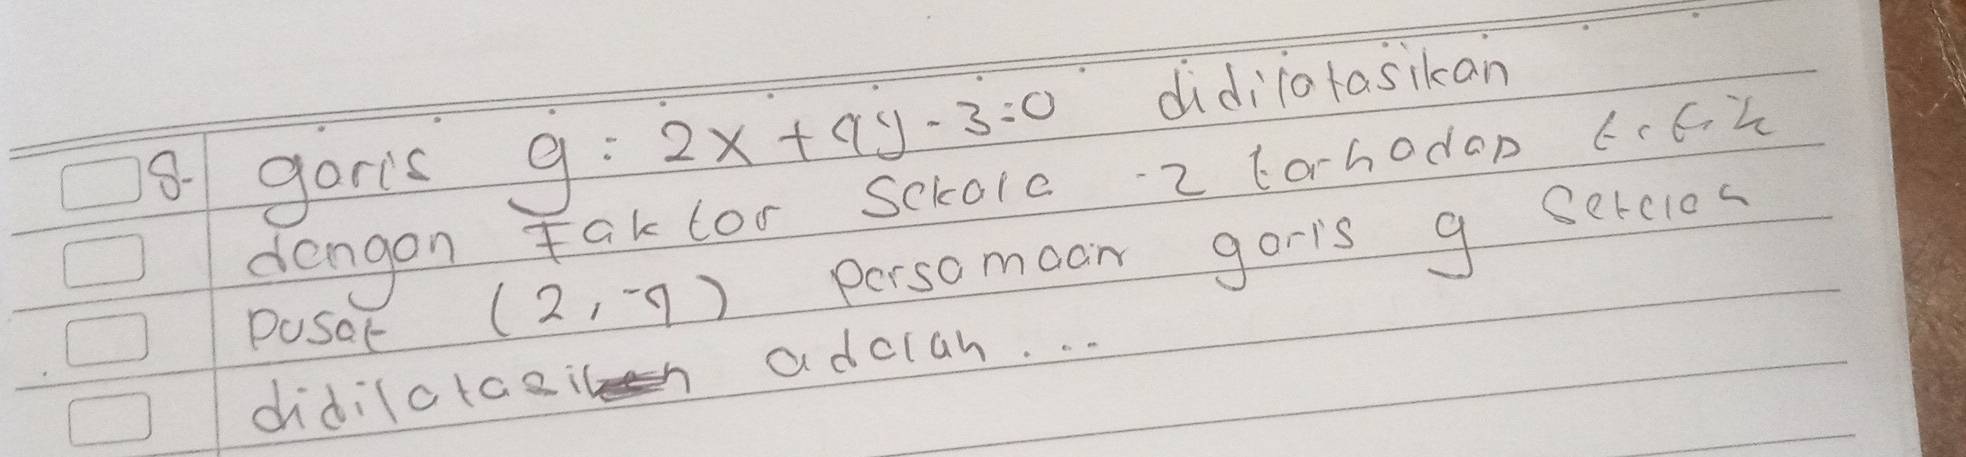 8. garis g : 2x + 4y - 3 = 0 didilatasikan
dengan faktor skala -2 terhadap titik
pusat (2, -4) persamaan garis g setelah
didilatasikan adalah ...